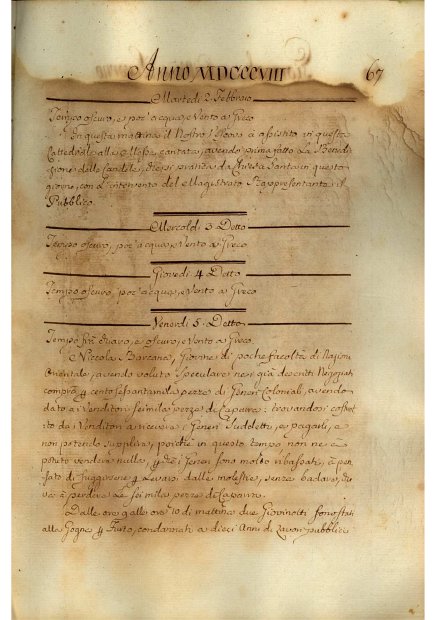 Anno MDCCCVIII
67
Martedi 2. Febbraro
Tempo oscuro, e poc' acqua, e Vento a Greco
In questa mattina il Nostro Vescovo à assistito in questa
Cattedrale alla Messa cantata, avendo prima fatto la Bened-
zione delle Candele, da Chiesa Santa in questo
giorno, con l'intervento del Magistrato Rappresentante il
Pubblico.
Mercoldi 3 Detto
Tempo oscuro, poc' acqua, e Vento a Greco
Giovedi 4 Detto
Tempo oscuro, poc' acqua, e Vento a Greco
Venerdi 5. Detto
Tempo frà Chiaro, e oscuro, e Vento a Greco
Niccola Giovane di poche facoltà di Nazion
Orientale, avendo voluto speculare nei già descritti Negoziati
comprò cento sessantamila pezze di Generi Coloniali, avendo
dato a i Venditori seimila pezze di Caparra: trovandosi costret
to da i Venditori a ricevere i Generi Suddetti, e pagarli, e
non potendo supplire, perchè in questo tempo non ne à
potuto vendere nulla, i Generi sono molto ribassati, à pen
sato di fuggirsene levarsi dalle molestie, senza badare,
a perdere le sei mila pezze di Caparra.
Dalle ore 9 alle ore 10 di mattina due Giovinotti sono stati
alla Gogna Furto, condannati a dieci Anni di Lavori pubblici